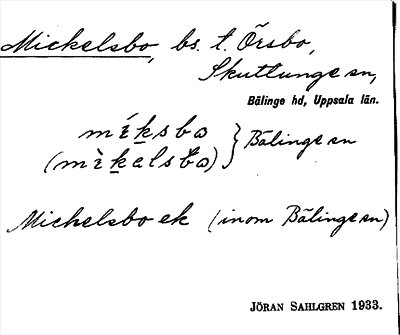 Mickelsbo, bs. t. Örsbo,
Skuttunge sn,
Bälinge hd, Uppsala län.
mı̀ksbɷ } Bälinge sn
(mı̀kalsbɷ)
Mickelsbo ek (inom Bälinge sn)
JÖRAN SAHLGREN 1933.